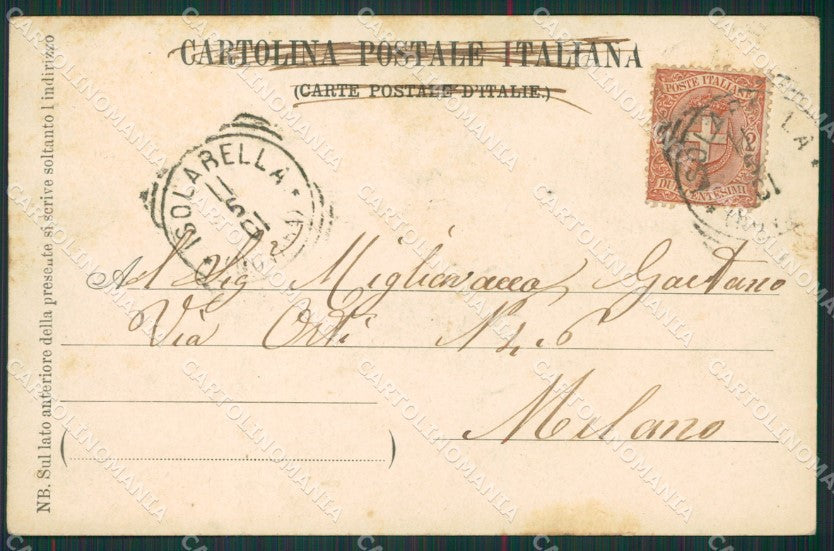 CARTOLINA POSTALE ITALIANA
(CARTE POSTALE D'ITALIE.)
POSTE ITALIANE
2
DUE CENTESIMI
ISOLARELLA
Al Sig.r Migliavacca Gaetano
Via Orti N. 6
Milano
NB. Sul lato anteriore della presente si scrive soltanto l'indirizzo
CARTOLINOMANIA